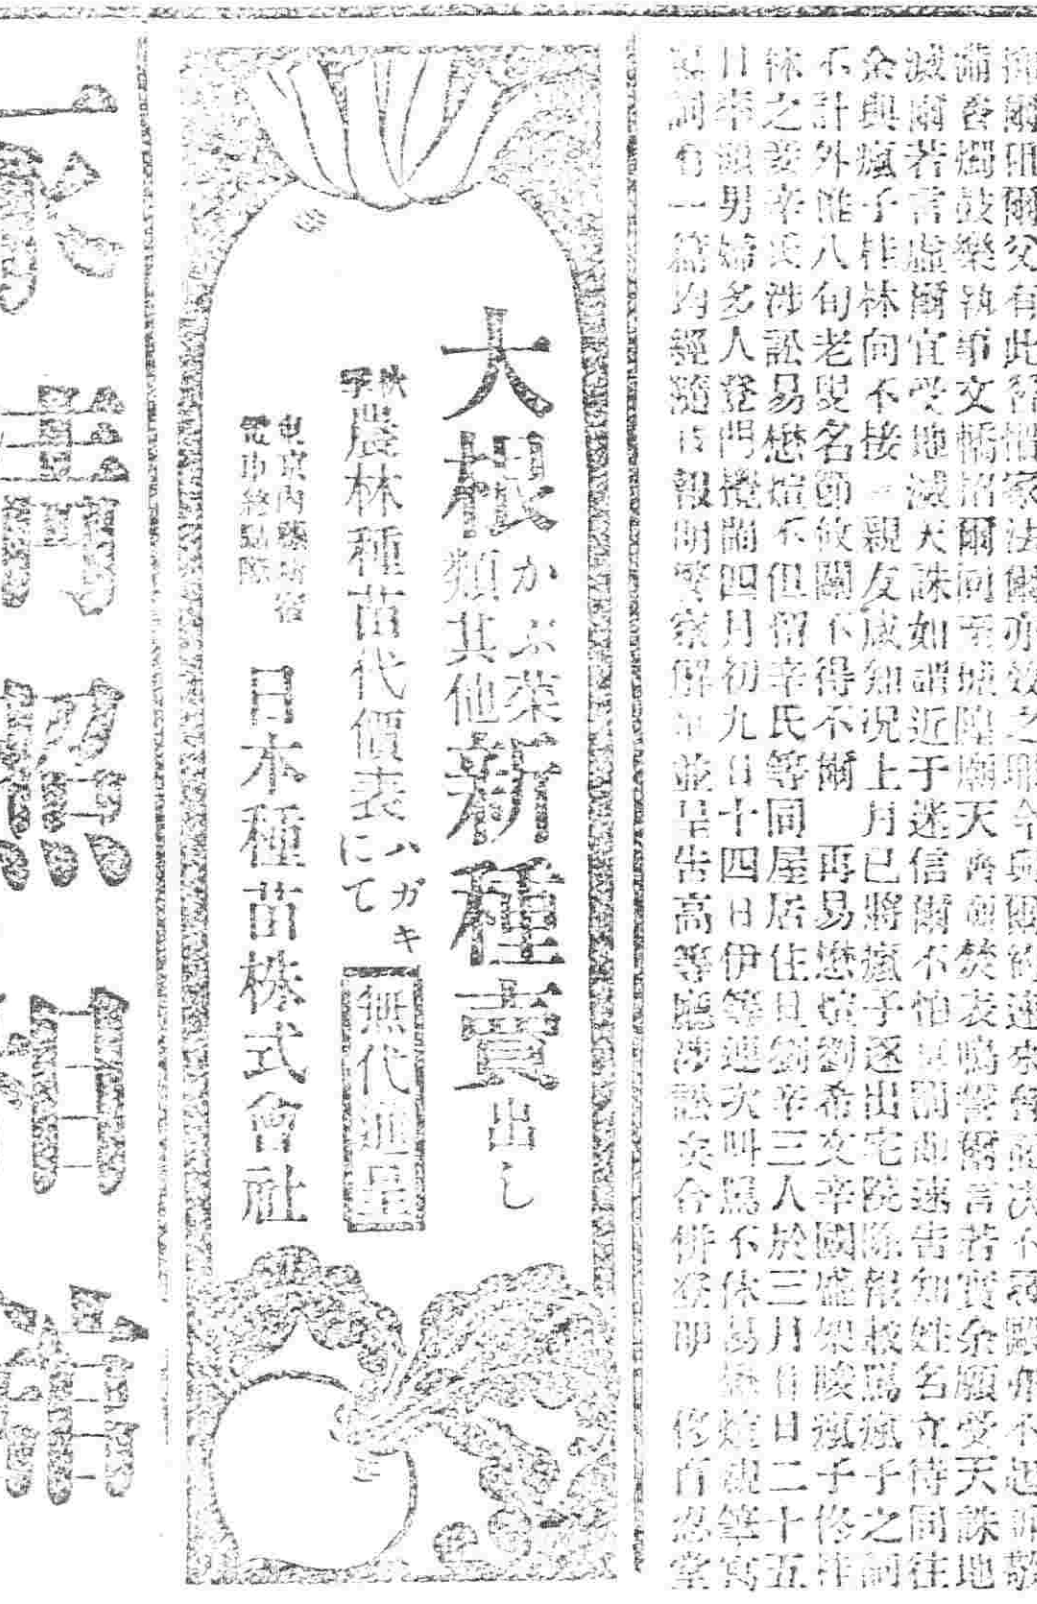 爾父有此習慣家法爾亦效之耶今與爾約速來
備香燭鼓樂執事文牘招爾同至城隍廟天齊廟焚表鳴誓爾言若實余願受天誅地
滅爾若言虛爾宜受地滅天誅如謂近于迷信爾不怕見聞即速告知姓名立待同往
余與瘋子桂林向不接一親友咸知況上月已將瘋子逐出宅院除報救罵瘋子之詞
不計外唯八旬老叟名節攸關不得不爾　再易懋煊劉希文辛國盛架唆瘋子修桂
林之妾辛氏涉訟易懋煊不但留辛氏等同屋居住且劉辛三人於三月廿日二十五
日率領男婦多人登門攪鬧四月初九日十四日伊等連次叫罵不休易懋煊親筆寫
詞有一篇均經隨日報明警察並呈告高等廳涉訟矣合併登明　修百忍堂
大根かぶ菜類其他新種賣出し
農林種苗代價表ハガキにて無代進呈
東京内藤新宿
電車終點際
日本種苗株式會社
永清照相館